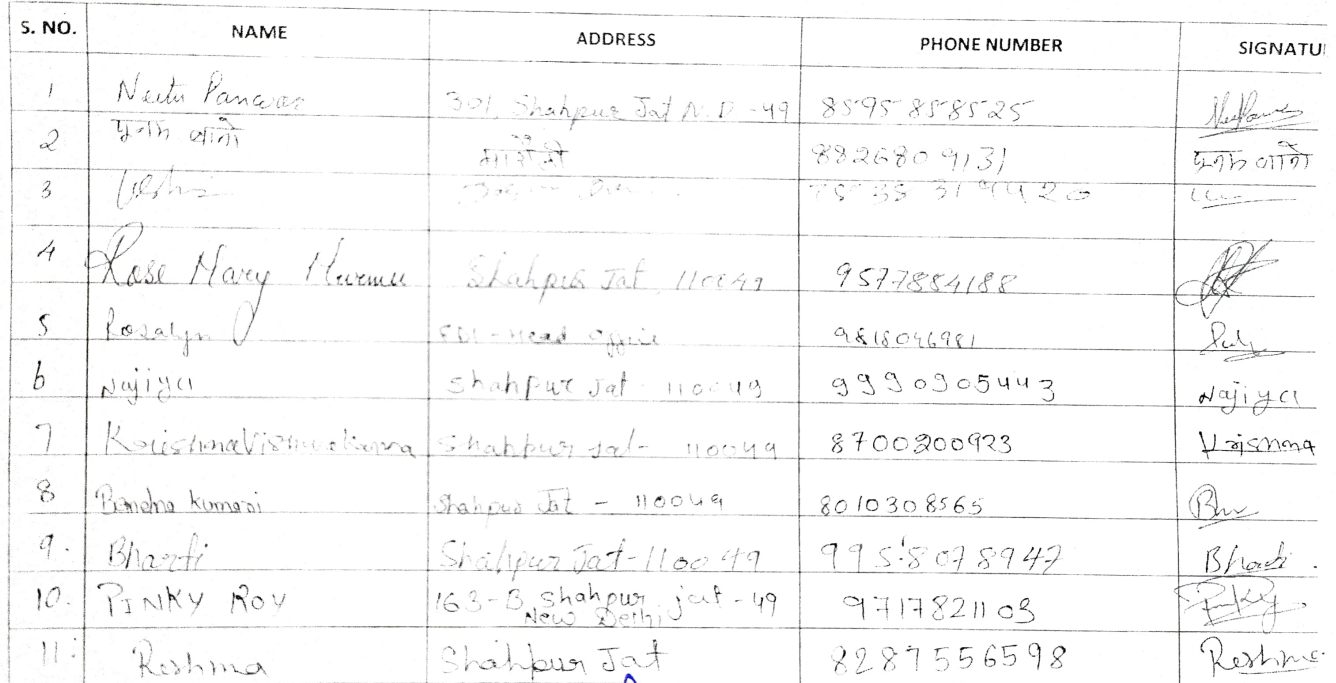 S. NO. NAME ADDRESS PHONE NUMBER SIGNATU
1 Neetu Panwar 301, Shahpur Jat N.D -49 8595858525
2 पुनम 8826809131 पुनम
3
4 Rose Mary Murmu Shahpur Jat 110049 9577884188
5 Rosalyn Head Office 9818046981
6 Najiya Shahpur Jat 110049 9990905443 Najiya
7 Krishna Vishwakarma Shahpur Jat- 110049 8700200923 Krishna
8 Kumari Shahpur Jat - 110049 8010308565
9. Bharti Shahpur Jat-110049 9958078947 Bharti
10. PINKY ROY 163-B, Shahpur jat -49 9717821103 Pinky
New Delhi
11. Reshma Shahpur Jat 8287556598 Reshma